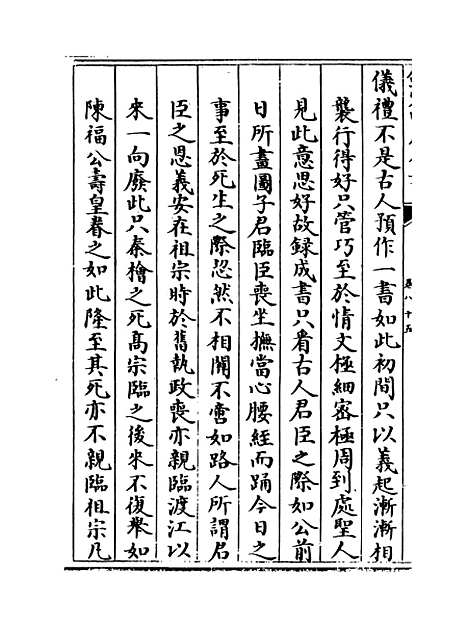 卷八十五
儀禮不是古人預作一書如此初間只以義起漸漸相
襲行得好只管巧至於情文極細密極周到處聖人
見此意思好故録成書只看古人君臣之際如公前
日所畫圖子君臨臣喪坐撫當心腰絰而踊今日之
事至於死生之際恝然不相關不啻如路人所謂君
臣之恩義安在祖宗時於舊執政喪亦親臨渡江以
來一向廢此只秦檜之死高宗臨之後來不復舉如
陳福公壽皇眷之如此隆至其死亦不親臨祖宗凡